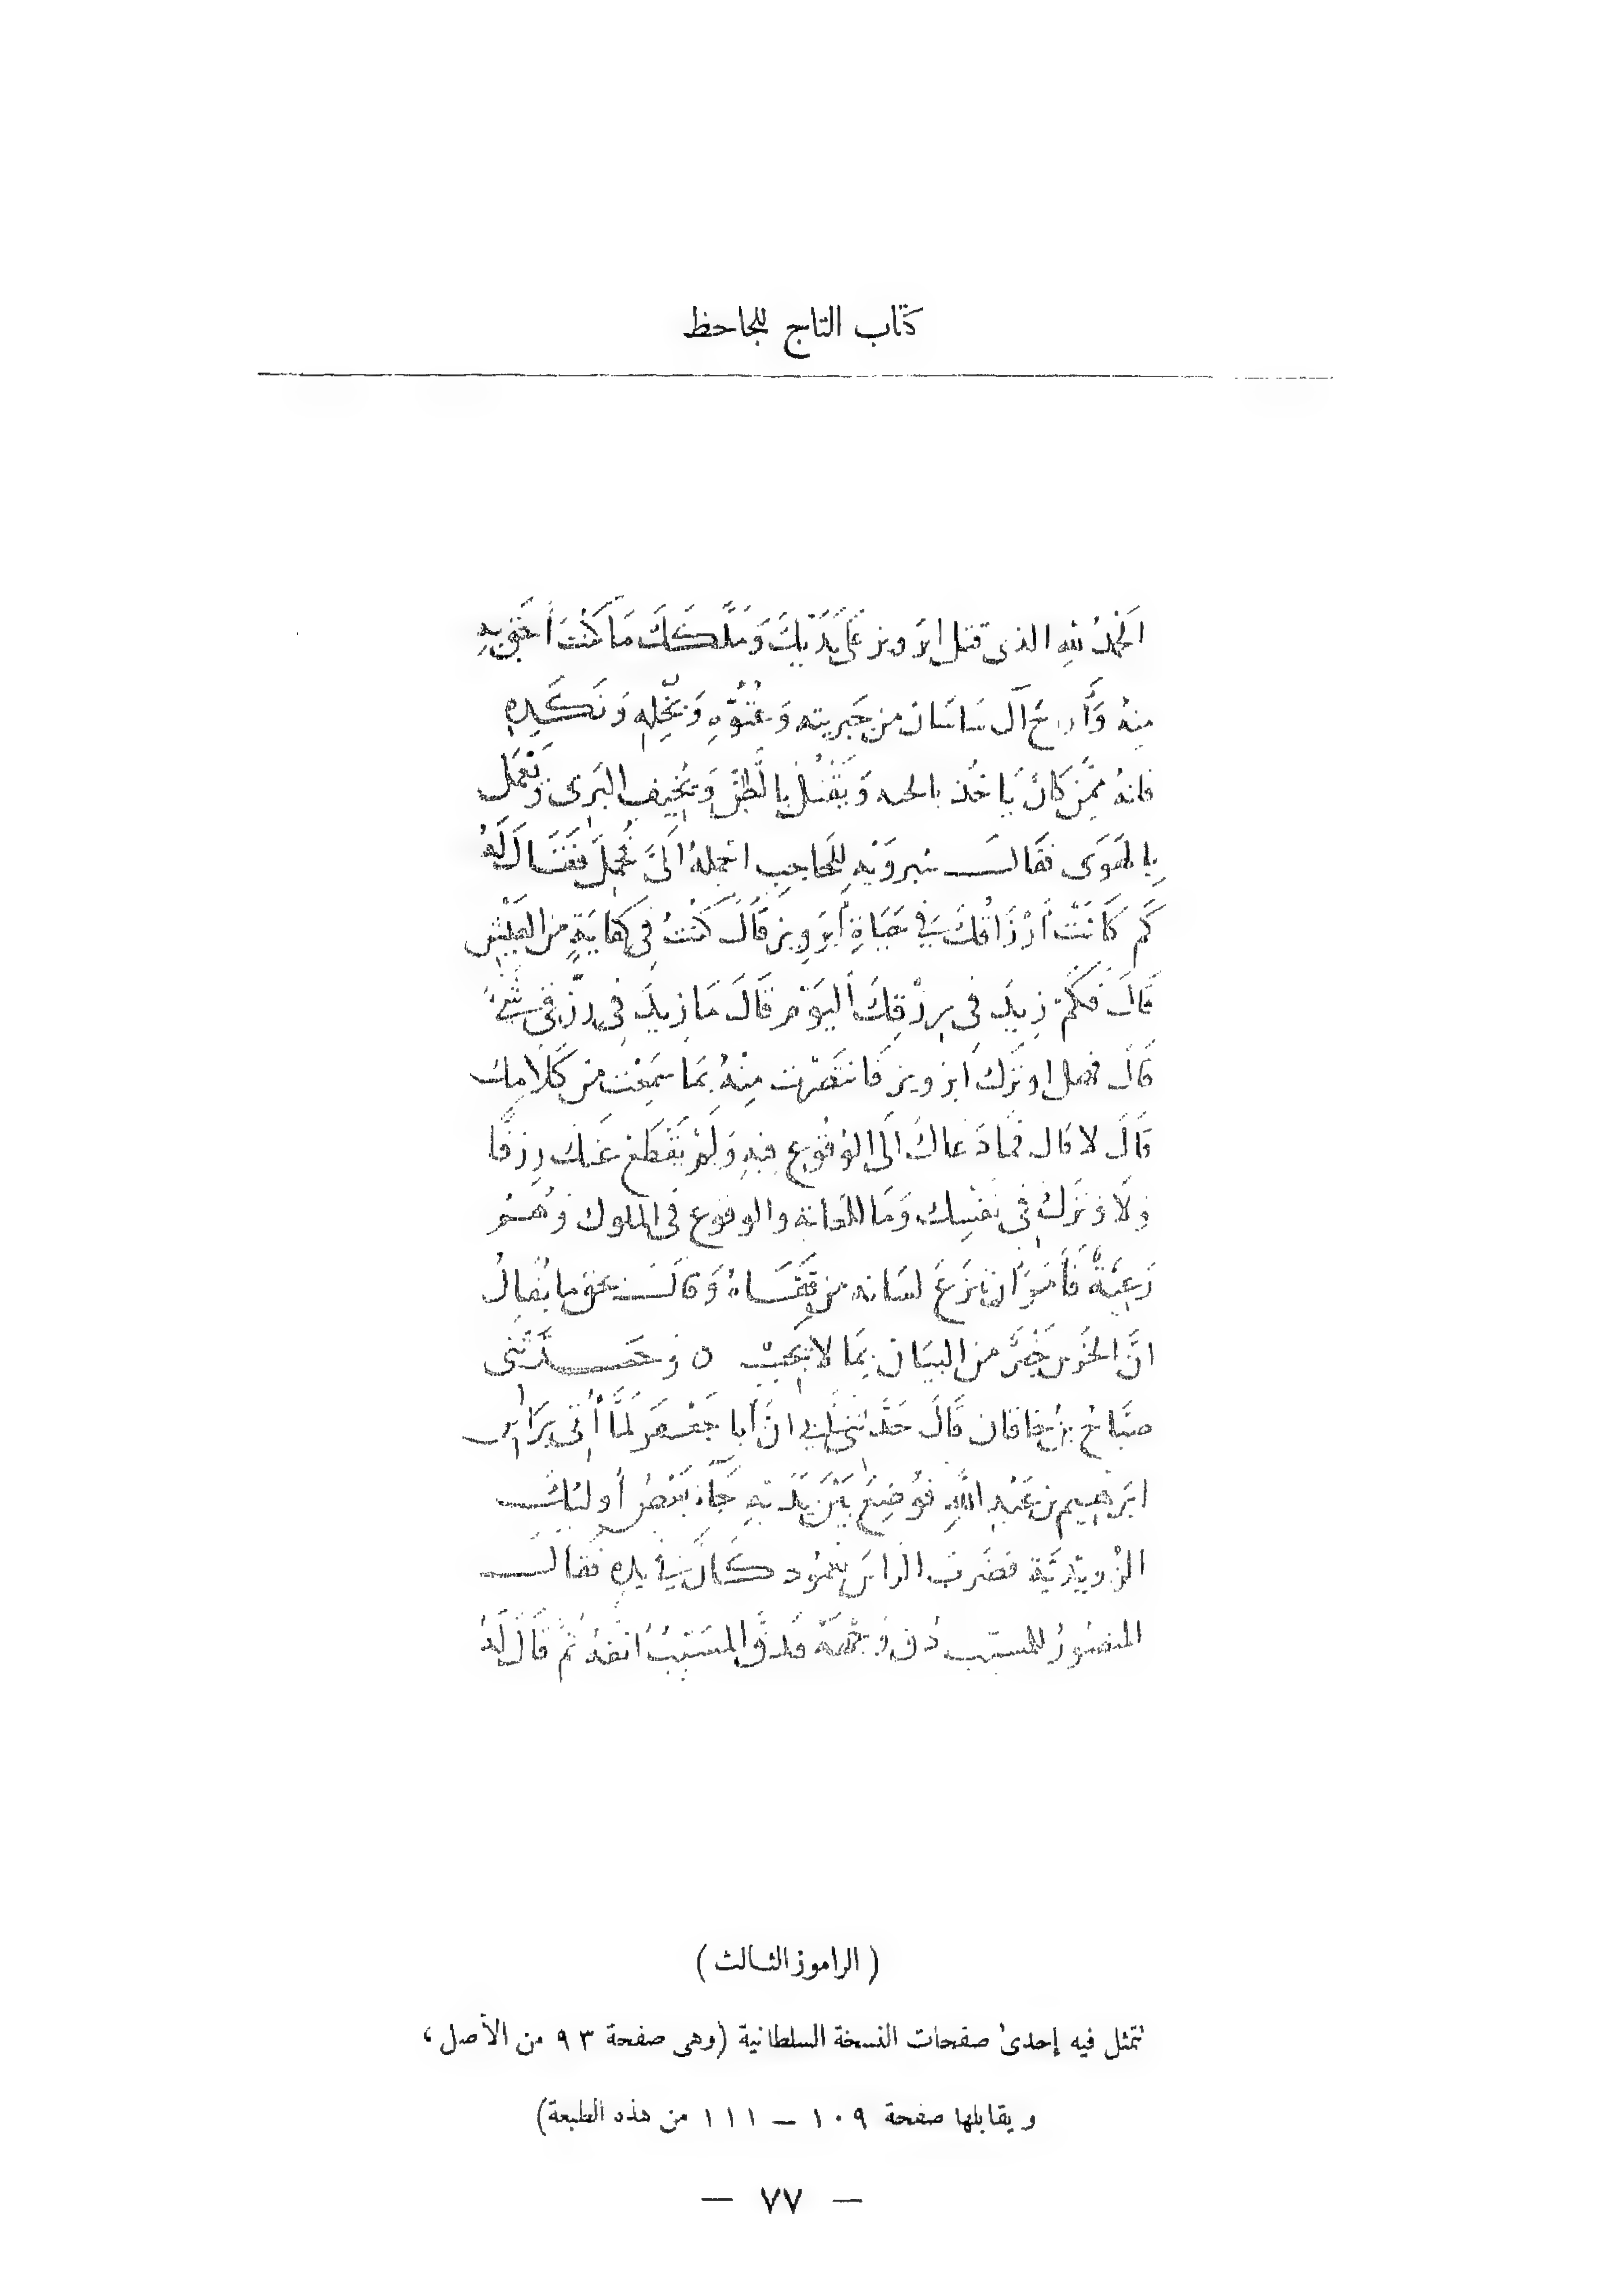 كتاب التاج للجاحظ
الحمدُ للهِ الذى قتل ابرويز عَلَى يَدَيْكَ وَمَلَّكَكَ مَا كُنْتَ أحَقَّ بِهِ
مِنهُ وَأراحَ آلَ سَاسَان من جَبريته وَعُتُوِّهِ وَبُخْلِهِ وَنَكَدِهِ
فانهُ مِمَّن كَانَ يَاخُذ بالحبه وَيَقْتُلُ بِالظَّنِّ وَيُخِيف البَرِى وَيَعْمَل
بِالهَوَى فقَالَ شيرويَهِ للحَاجِبِ احمِلهُ الَىَّ فحُمِلَ فقَالَ لَهُ
كَم كَانَتْ أرْزَاقُكَ فِي حَيَاةِ أبرَوِيز قَالَ كُنتُ فِى كِفَايَةٍ من العَيْشِ
قَالَ فَكَمْ زِيدَ فِى رِزْقِكَ اليَوْمَ قَالَ مَا زِيدَ فِى رِزْقِى شَىْءٌ
قَالَ فهل اوتَرَكَ ابرويز فَانتَصَرْت مِنْهُ بِمَا سَمِعْت من كَلَامِكَ
قَالَ لا قال فمَا دَعَاكَ الَى الوُقُوعِ فِيهِ وَلَمْ يَقْطَعْ عَنكَ رِزقًا
وَلَا وَتَرَكَ فى نَفسِكَ وَمَا للعَامّة والوقوع فى الملوك وَهُم
رَعِيَّةٌ فَأَمَرَ أن يُنزعَ لسَانه من قَفَاهُ وَقَالَ بحق مَا يُقالُ
انَّ الخَرَس خَيْرٌ من البيَان بِمَا لا يَجِبُ ٥ وَحَدَّثَنِى
صَبَّاحُ بنُ خاقان قَالَ حَدَّثَنِى أبِى انَّ أبا جَعْفَر لَمَّا أُتِى بِرَاسِ
ابرَهِيم بن عَبْدِ اللهِ فوُضِعَ بَيْنَ يَدَيْهِ جَآءَ بَعْضُ أولئِكَ
الرُّوَيْدِيَّة فضَرَبَ الراسَ بعَمُود كَانَ فِى يدِهِ فقَالَ
المنصُورُ للمسيّب دُقَّ وَجْهَهُ فدَقَّ المسَيّبُ أنفَهُ ثُمَّ قَالَ لَهُ
(الراموز الثالث)
تتمثل فيه إحدىٰ صفحات النسخة السلطانية (وهى صفحة ٩٣ من الأصل،
ويقابلها صفحة ١٠٩ — ١١١ من هذه الطبعة)
— ٧٧ —